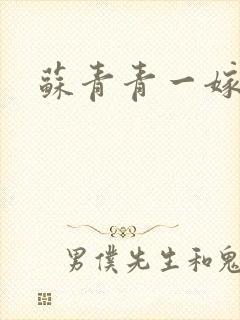 蘇青青一嫁
男僕先生和鬼